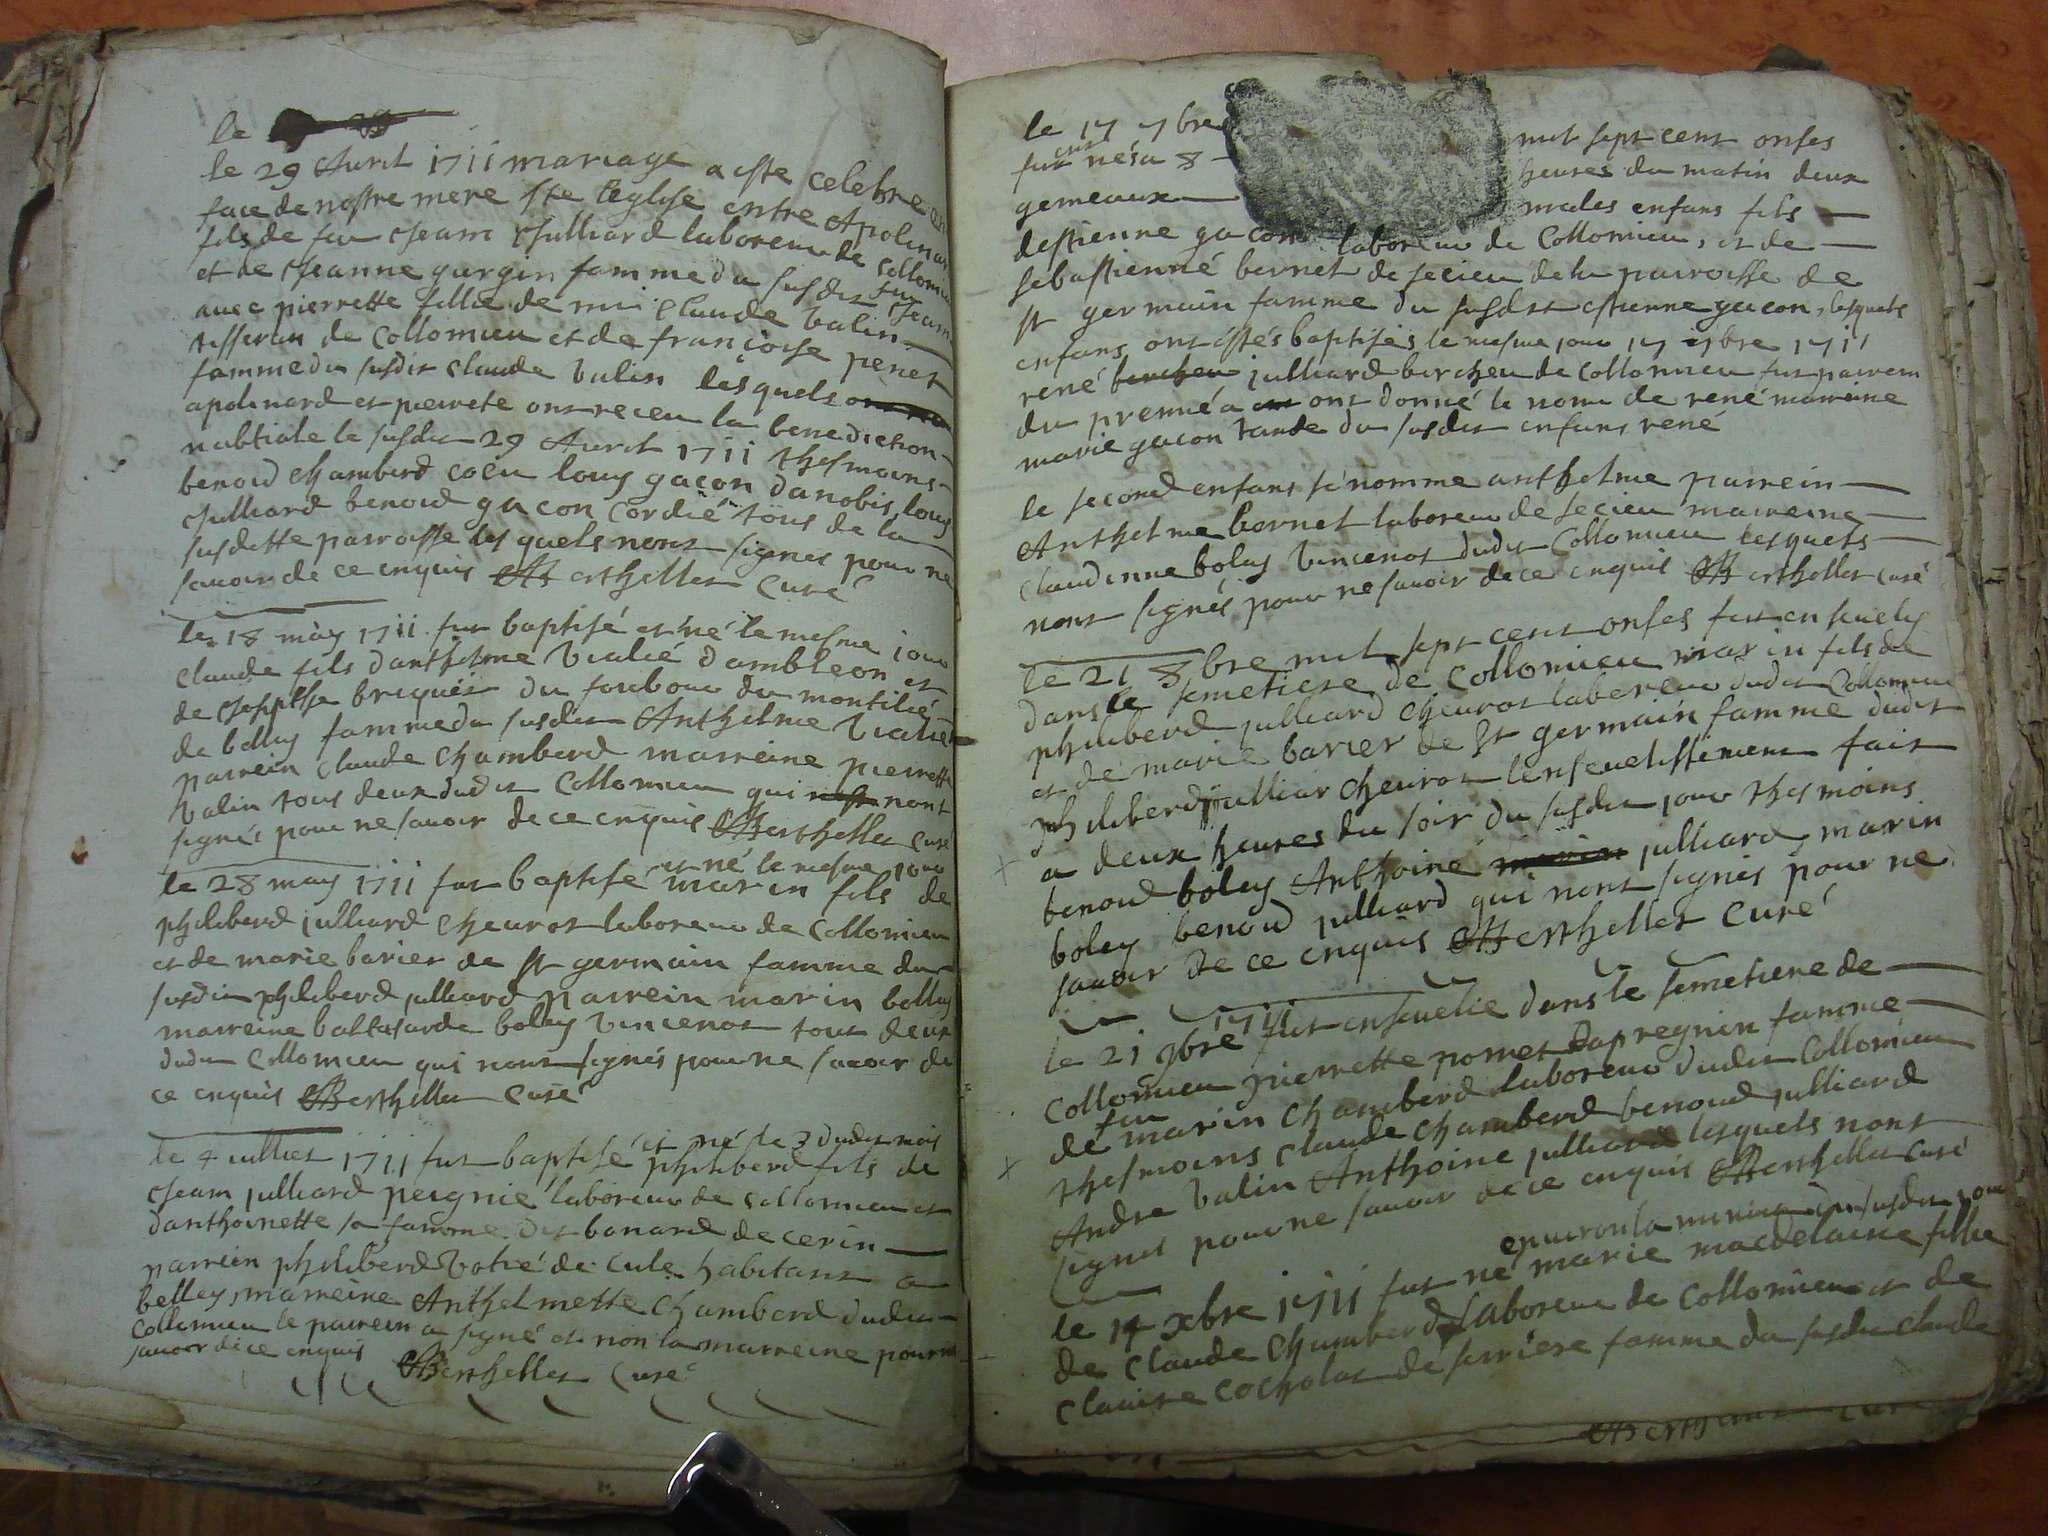 le
le 29 Avril 1711 mariage a este celebre en
face de nostre mere ste leglise entre Apolinar
fils de feu Jean Julliard laboreur de Collomieu
et de Jeanne gurgin famme du susdit feu Jean
avec pierrette fillie de mi Claude Valin
tisseran de Collomieu et de françoise penet
famme du susdit claude Valin lesquels
apolinard et pierrete ont receu la benediction
nubtiale le susdit 29 Avril 1711 thesmoins
benoid chamberd coeu louy gacon danobis, louy
Julliard benoid gacon Cordié tous de la
susditte parroisse lesquels nont signes pour ne
savoir de ce enquis Berthellet Curé
le 18 may 1711 fut baptisé et né le mesme jour
claude fils danthelme Vialié dambleon et
de Josephe briquet du foubour du montilié
de belley famme du susdit Anthelme Vialié
parrein claude Chamberd marreine pierrette
Valin tous deux dudit Collomieu qui nont
signés pour ne savoir de ce enquis Berthellet curé
et né le mesme jour
le 28 may 1711 fut baptisé marin fils de
philiberd julliard cheurot laboreur de Collomieu
et de marie barier de st germain famme du
susdit philiberd julliard parrein marin bolley
marreine baltasarde boley Vincenot tout deux
dudit Collomieu qui nont signés pour ne savoir de
ce enquis Berthellet Curé
et né le 3 dudit mois
le 4 julliet 1711 fut baptisé philiberd fils de
Jean julliard peignié laboreur de Collomieu et
danthoinette sa famme dit bonard de cerin
parrein philiberd Votié de Cule habitant a
belley, marreine Anthelmette Chamberd dudit
Collomieu le parrein a signé et non la marreine pour ne
savoir de ce enquis
Berthellet Curé
le 17 7bre mil sept cent onses
fut nés a 8 heures du matin deux
gemeaux males enfans fils
destienne gacon laboreur de Collomieu, et de
sebastienne bernet de secieu de la parroisse de
st germain famme du susdit estienne gacon, lesquels
enfans ont estés baptisés le mesme jour 17 7bre 1711
rené julliard bercheu de Collomieu fut parrein
du premié a ont donné le nom de rené marreine
marie gacon tande du susdit enfans rené
le second enfans se nomme anthelme parrein
Anthelme bornet laboreur de secieu marreine
claudinne boley Vincenot dudit Collomieu lesquels
nont signés pour ne savoir de ce enquis Berthellet curé
le 21 8bre mil sept cent onses fut ensevely
dans le semetiere de Collomieu marin fils de
philiberd julliard cheurot laboreur dudit Collomieu
et de marie barier de st germain famme dudit
philiberd julliar cheurot lensevelissement fait
a deux heures du soir du susdit jour thesmoins
benoid boley Anthoine julliard, marin
boley benoid julliard qui nont signés pour ne
savoir de ce enquis Berthellet Curé
1711
le 21 9bre fut ensevelie dans le semetiere de
Collomieu pierrette pomet dapregnin famme
feu
de marin Chamberd laboreur dudit Collomieu
thesmoins claude Chamberd benoud julliard
Andre Valin Anthoine julliard lesquels nont
signes pour ne savoir de ce enquis Berthellet Curé
environ la minuit du susdit jour
le 14 xbre 1711 fut né marie magdelaine fillie
de claude Chamberd laboreur de Collomieu et de
claire cocholat de serriere famme du susdit claude